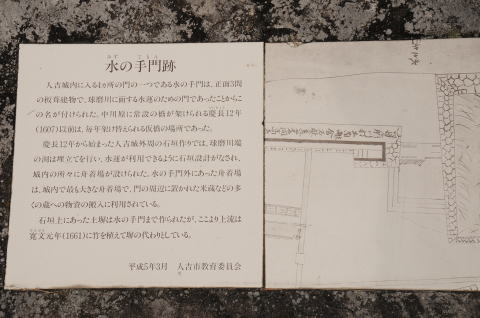 水の手門跡
人吉城内に入る4ヵ所の門の一つである水の手門は、正面3間
の板葺建物で、球磨川に面する水運のための門であったことからこ
の名が付けられた。中川原に常設の橋が架けられる慶長12年
(1607)以前は、毎年架け替えられる仮橋の場所であった。
慶長12年から始まった人吉城外周の石垣作りでは、球磨川端
の淵は埋立てを行い、水運が利用できるように石垣設計がなされ、
城内の所々に舟着場が設けられた。水の手門外にあった舟着場
は、城内で最も大きな舟着場で、門の周辺に置かれた米蔵などの多
くの蔵への物資の搬入に利用されている。
石垣上にあった土塀は水の手門まで作られたが、ここより上流は
寛文元年(1661)に竹を植えて塀の代わりとしている。
平成5年3月 人吉市教育委員会